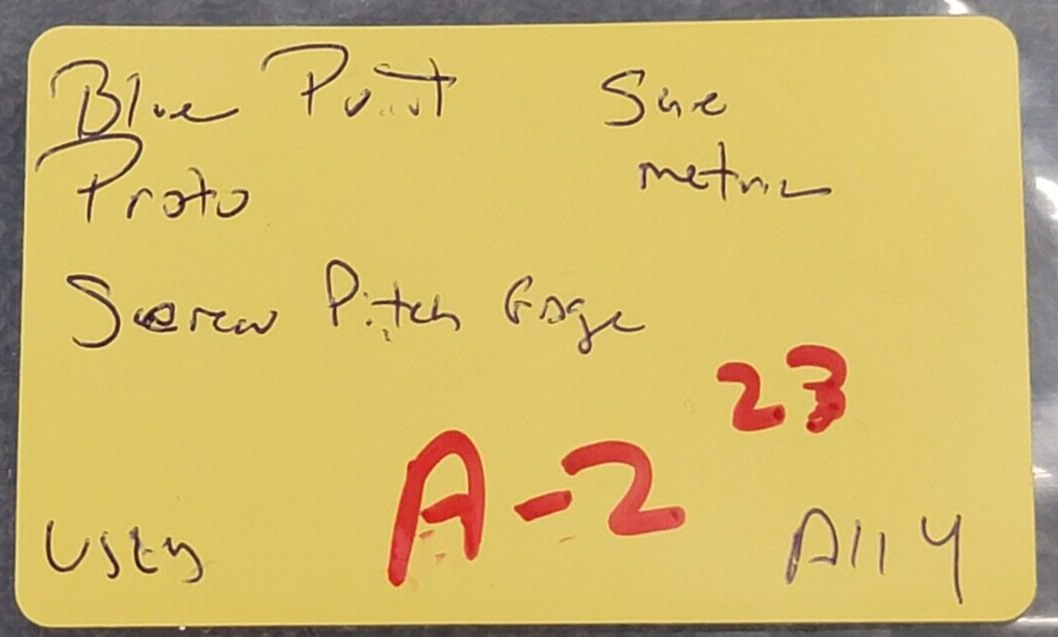 Blue Point
Proto
Sae
metric
Screw Pitch Gage
23
A-2
Used
All 4